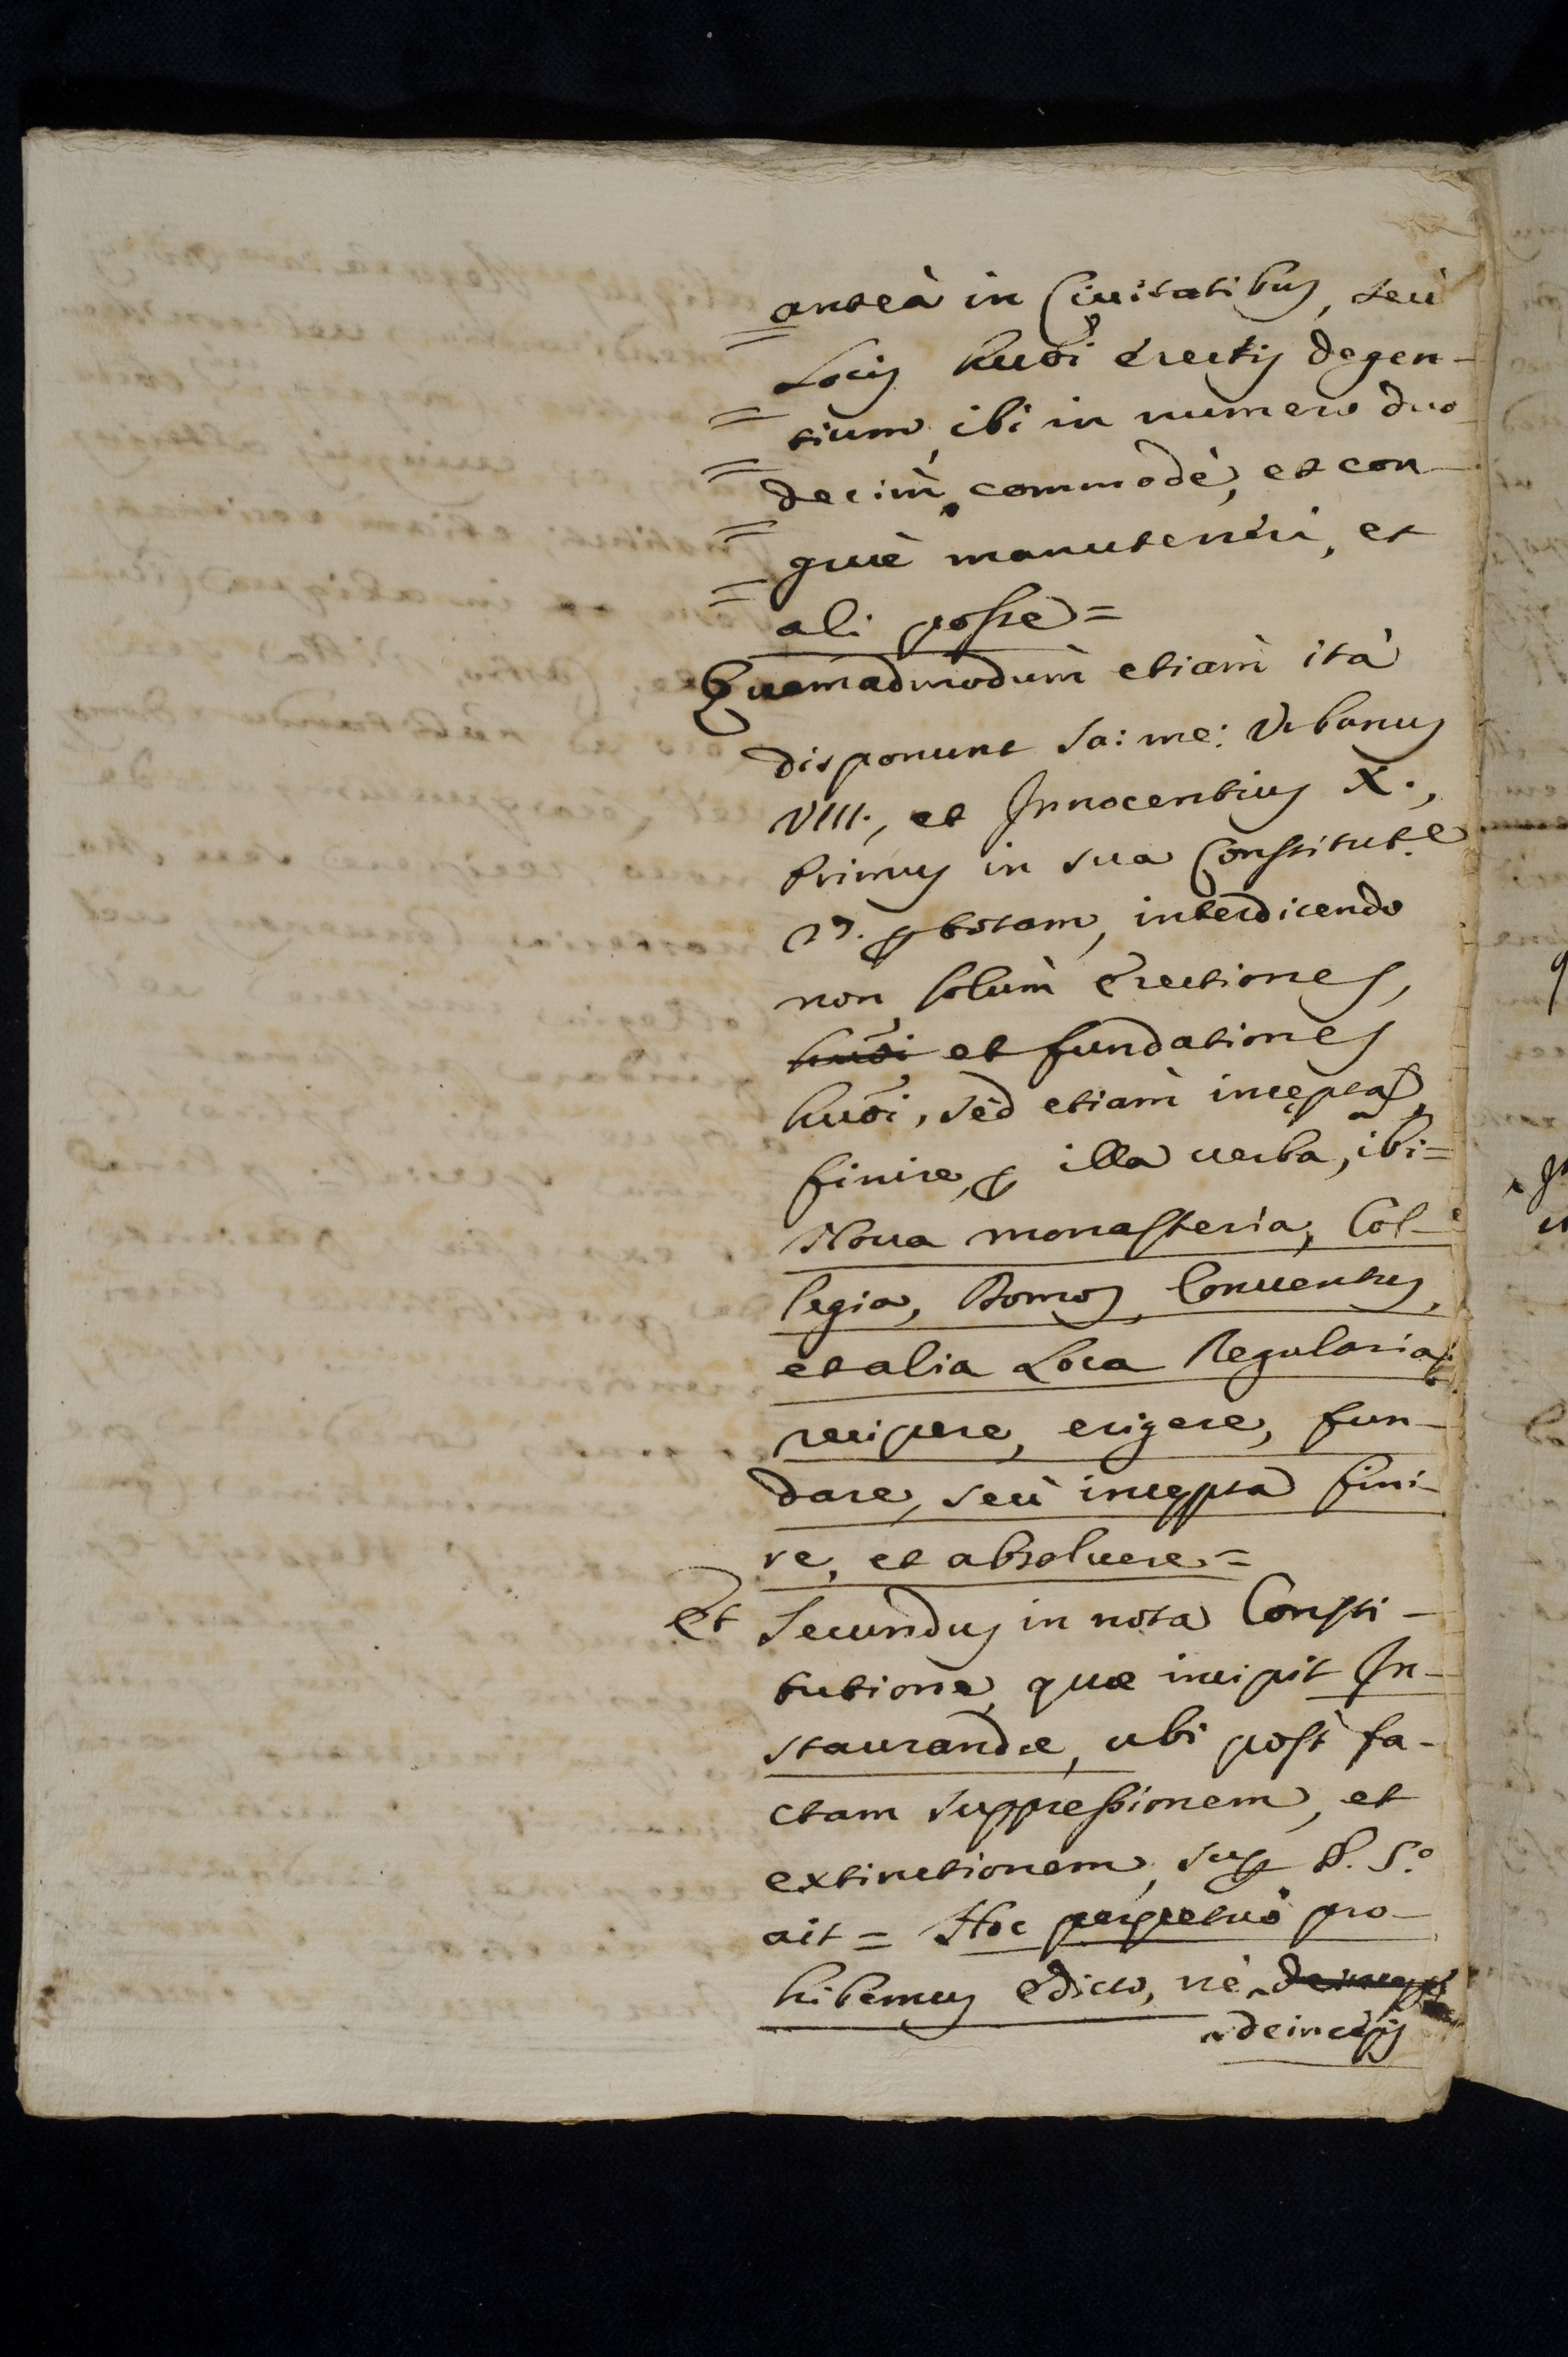 anteà in Ciuitatibus, seù
Locis huõi erectis degen-
tium, ibi in numero duo
decim, commodè, et con-
gruè manuteneri, et
ali posse=
Quemadmodùm etiam ità
disponunt sa: me: Vrbanus
VIII., et Innocentius X.,
Primus in sua Constitut.e
27. per totam, interdicendo
non solùm erectiones,
huõi et fundationes
huõi, sed etiam incępta
finire, per illa verba, ibi=
Noua monasteria, Col-
legia, Domos, Conuentus,
et alia Loca Regularia
recipere, erigere, fun-
dare, seù incępta fini-
re, et absoluere=
Et Secundus in nota Consti-
tutione, quæ incipit In-
staurandæ, ubi post fa-
ctam suppressionem, et
extinctionem, sup §. 5.°
ait = Hoc perpetuò pro-
hibemus edicto, nè deinceps
deinceps